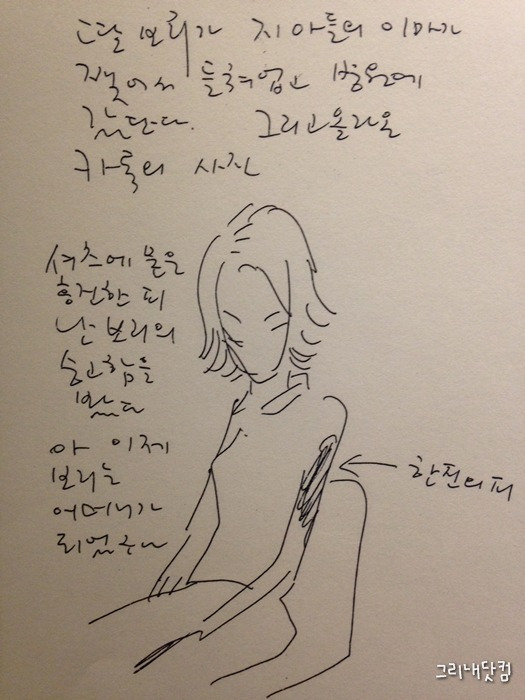 그날 보리가 지 아들의 이마가
찢어져 들쳐업고 병원에
갔단다. 그리고 올라온
카톡의 사진
셔츠에 묻은
흥건한 피
난 보리의
숭고함을
봤다
아 이제
보리는
어머니가
되었구나
한전의 피
그리내닷컴